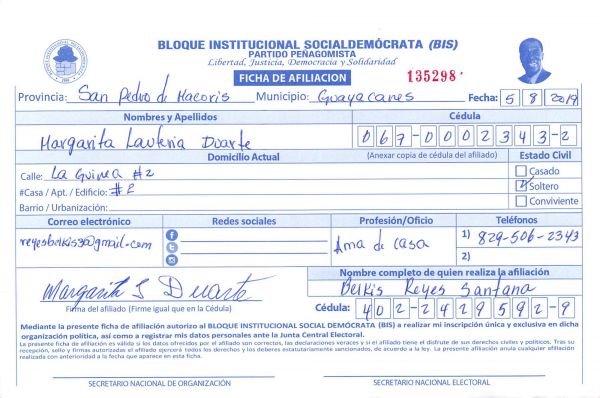 BLOQUE INSTITUCIONAL SOCIALDEMÓCRATA (BIS)
PARTIDO PEÑAGOMISTA
Libertad, Justicia, Democracia y Solidaridad
FICHA DE AFILIACION 135298
Provincia: San Pedro de Macoris Municipio: Guayacanes Fecha: 5 8 2019
Nombres y Apellidos Cédula
Margarita Lauteria Duarte 067-0002343-2
Domicilio Actual (Anexar copia de cédula del afiliado) Estado Civil
Calle: La Guinea #2 Casado
#Casa / Apt. / Edificio: #2 Soltero
Barrio / Urbanización: Conviviente
Correo electrónico Redes sociales Profesión/Oficio Teléfonos
reyesbelkis3@gmail.com Ama de casa 1) 829-506-2343
2)
Nombre completo de quien realiza la afiliación
Margarita Duarte Belkis Reyes Santana
Firma del afiliado (Firme igual que en la Cédula) Cédula: 402-2429592-9
Mediante la presente ficha de afiliación autorizo al BLOQUE INSTITUCIONAL SOCIAL DEMÓCRATA (BIS) a realizar mi inscripción única y exclusiva en dicha
organización política, así como a registrar mis datos personales ante la Junta Central Electoral.
La presente ficha de afiliación es válida si los datos ofrecidos por el afiliado son correctos, las declaraciones veraces y si el afiliado tiene el disfrute de sus derechos civiles y políticos. Tras su
recepción, sello y firmas autorizadas el afiliado ejercerá todos los derechos y los deberes estatutariamente sancionados, de acuerdo a la ley. La presente afiliación anula cualquier afiliación
realizada con anterioridad a la fecha que aparece en esta ficha.
SECRETARIO NACIONAL DE ORGANIZACIÓN SECRETARIO NACIONAL ELECTORAL